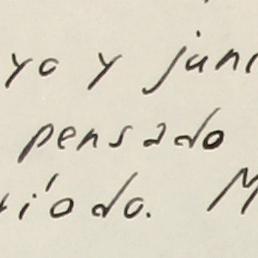 yo y juni
pensado
ríodo. M